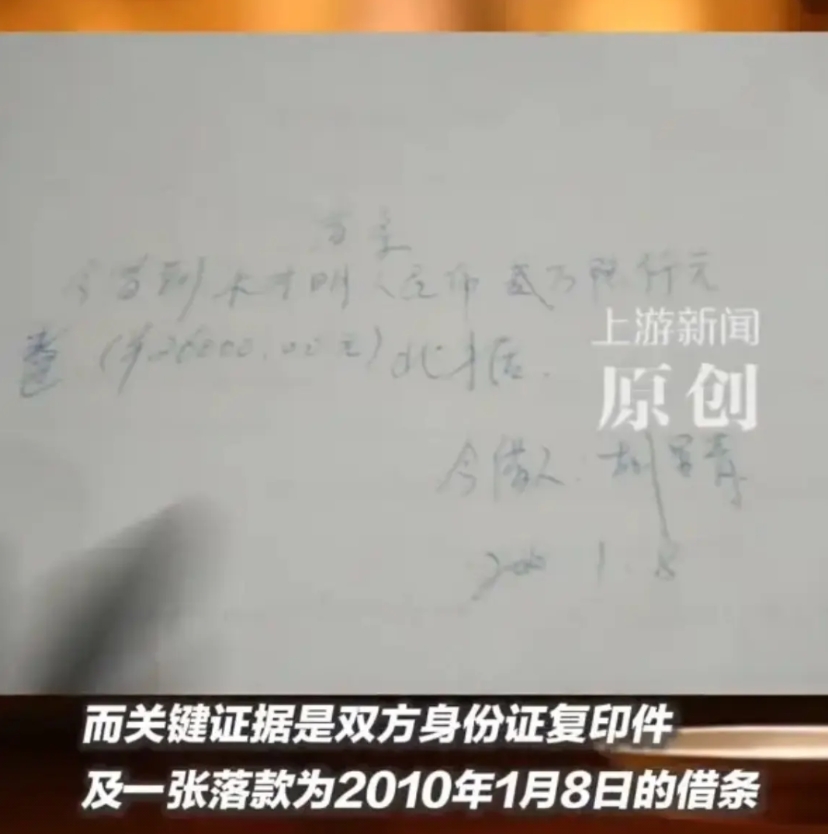 借条
今借到 明人民币贰万陆仟元
整(¥26000.00元)此据.
上游新闻
原创
今借人: 胡
1.8
而关键证据是双方身份证复印件
及一张落款为2010年1月8日的借条